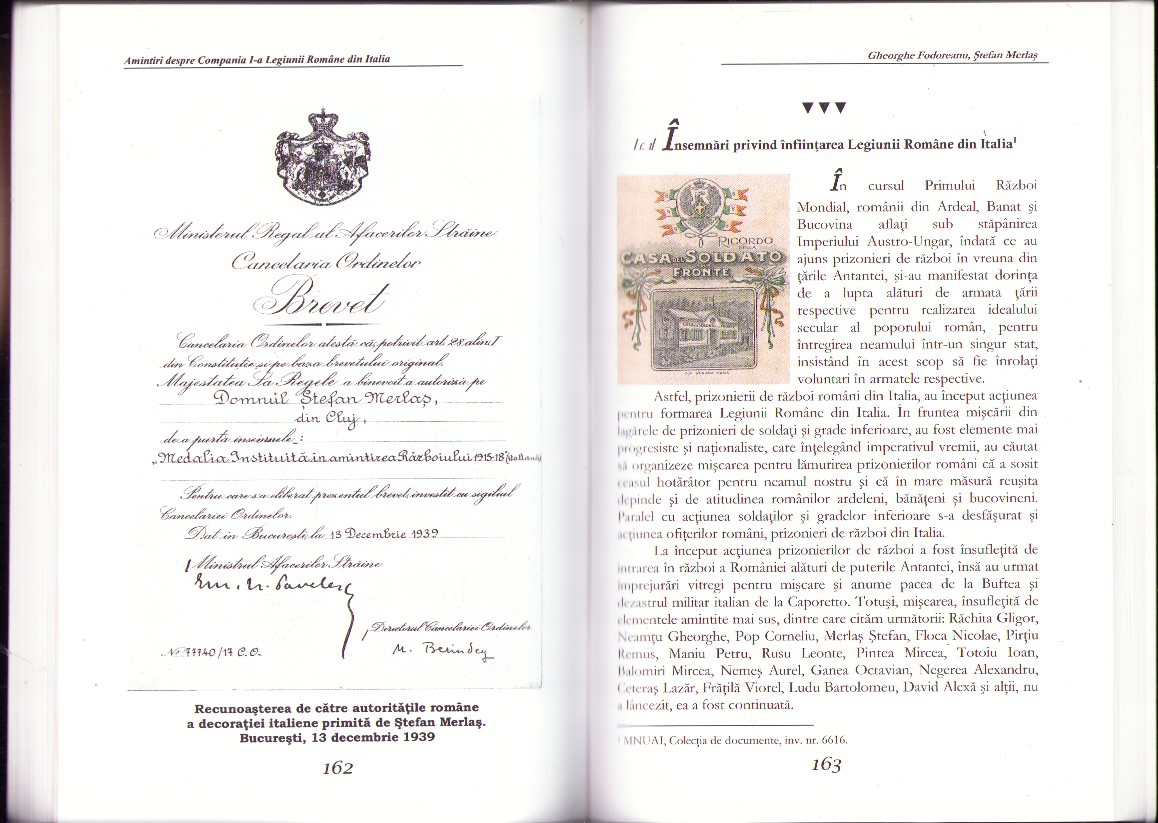 Amintiri despre Compania I-a Legiunii Române din Italia
Ministerul Regal al Afacerilor Străine
Cancelaria Ordinelor
Brevet
Cancelaria Ordinelor atestă că, potrivit art. 28 alin. I
din Constituție și pe baza brevetului original,
Majestatea Sa Regele a binevoit a autoriza pe
Domnul Ștefan Merlaș,
din Cluj,
de a purta însemnele:
„Medalia Instituită în amintirea Războiului 1915-18"
Pentru care s'a eliberat prezentul brevet, investit cu sigiliul
Cancelariei Ordinelor.
Dat în București, la 13 Decembrie 1939
Ministrul Afacerilor Străine
Directorul Cancelariei Ordinelor
No 77740/17 C.O.
Recunoașterea de către autoritățile române
a decorației italiene primită de Ștefan Merlaș.
București, 13 decembrie 1939
162
Gheorghe Fodoreanu, Ștefan Merlaș
▼▼▼
Însemnări privind înființarea Legiunii Române din Italia¹
RICORDO
DELLA
CASA DEL SOLDATO
FRONTE
În cursul Primului Război
Mondial, românii din Ardeal, Banat și
Bucovina aflați sub stăpânirea
Imperiului Austro-Ungar, îndată ce au
ajuns prizonieri de război în vreuna din
țările Antantei, și-au manifestat dorința
de a lupta alături de armata țării
respective pentru realizarea idealului
secular al poporului român, pentru
întregirea neamului într-un singur stat,
insistând în acest scop să fie înrolați
voluntari în armatele respective.
Astfel, prizonierii de război români din Italia, au început acțiunea
pentru formarea Legiunii Române din Italia. În fruntea mișcării din
lagărele de prizonieri de soldați și grade inferioare, au fost elemente mai
progresiste și naționaliste, care înțelegând imperativul vremii, au căutat
să organizeze mișcarea pentru lămurirea prizonierilor români că a sosit
ceasul hotărâtor pentru neamul nostru și că în mare măsură reușita
depinde și de atitudinea românilor ardeleni, bănățeni și bucovineni.
Paralel cu acțiunea soldaților și gradelor inferioare s-a desfășurat și
acțiunea ofițerilor români, prizonieri de război din Italia.
La început acțiunea prizonierilor de război a fost însuflețită de
intrarea în război a României alături de puterile Antantei, însă au urmat
împrejurări vitregi pentru mișcare și anume pacea de la Buftea și
dezastrul militar italian de la Caporetto. Totuși, mișcarea, însuflețită de
elementele amintite mai sus, dintre care cităm următorii: Răchita Gligor,
Neamțu Gheorghe, Pop Corneliu, Merlaș Ștefan, Floca Nicolae, Pirțiu
Remus, Maniu Petru, Rusu Leonte, Pintea Mircea, Totoiu Ioan,
Balomiri Mircea, Nemeș Aurel, Ganea Octavian, Negerea Alexandru,
Ceteraș Lazăr, Frățilă Viorel, Ludu Bartolomeu, David Alexă și alții, nu
a lâncezit, ea a fost continuată.
¹ MNUAI, Colecția de documente, inv. nr. 6616.
163